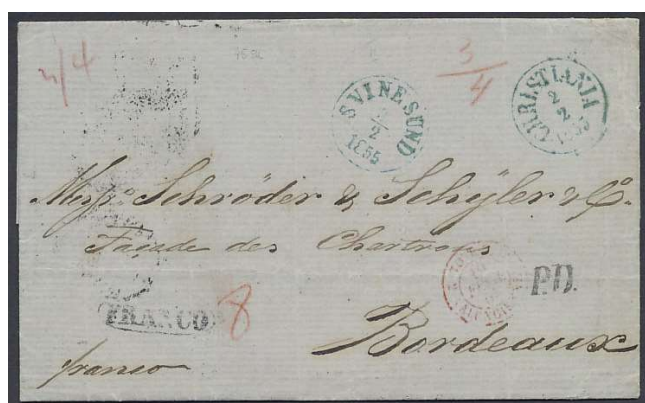 3/4
SVINESUND
3/2
1855
CHRISTIANIA
2
2
1855
Messrs Schröder & Schÿler & Co.
Façade des Chartrons
P.D.
FRANCO
8
Bordeaux
franco